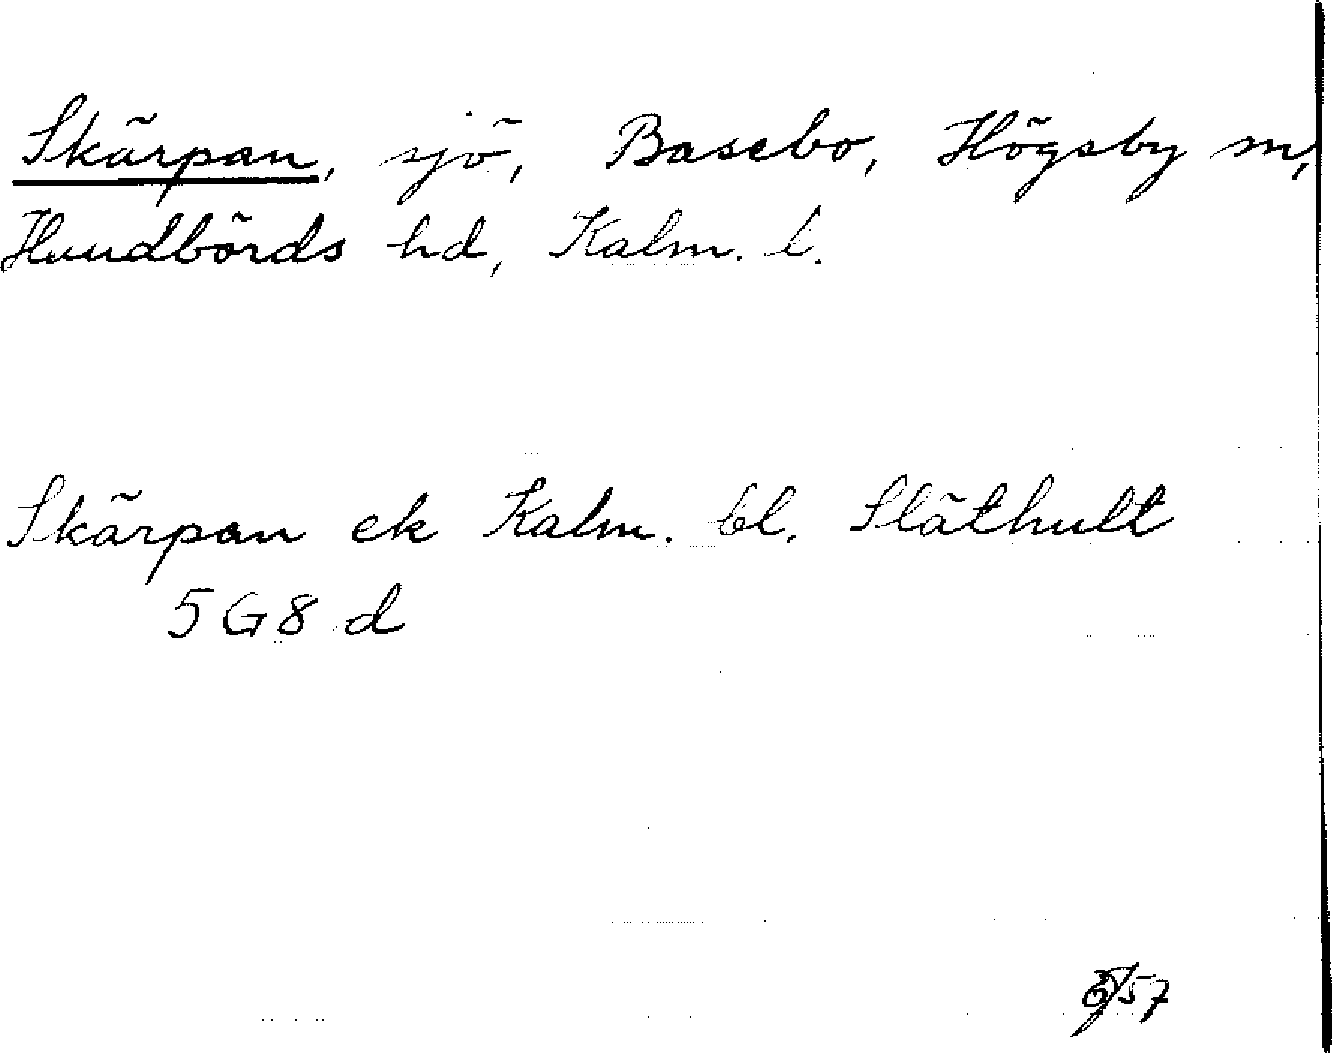 Skärpan, sjö, Basebo, Högsby sn,
Handbörds hd, Kalm. l.
Skärpan ek Kalm. bl. Släthult
5 G 8 d